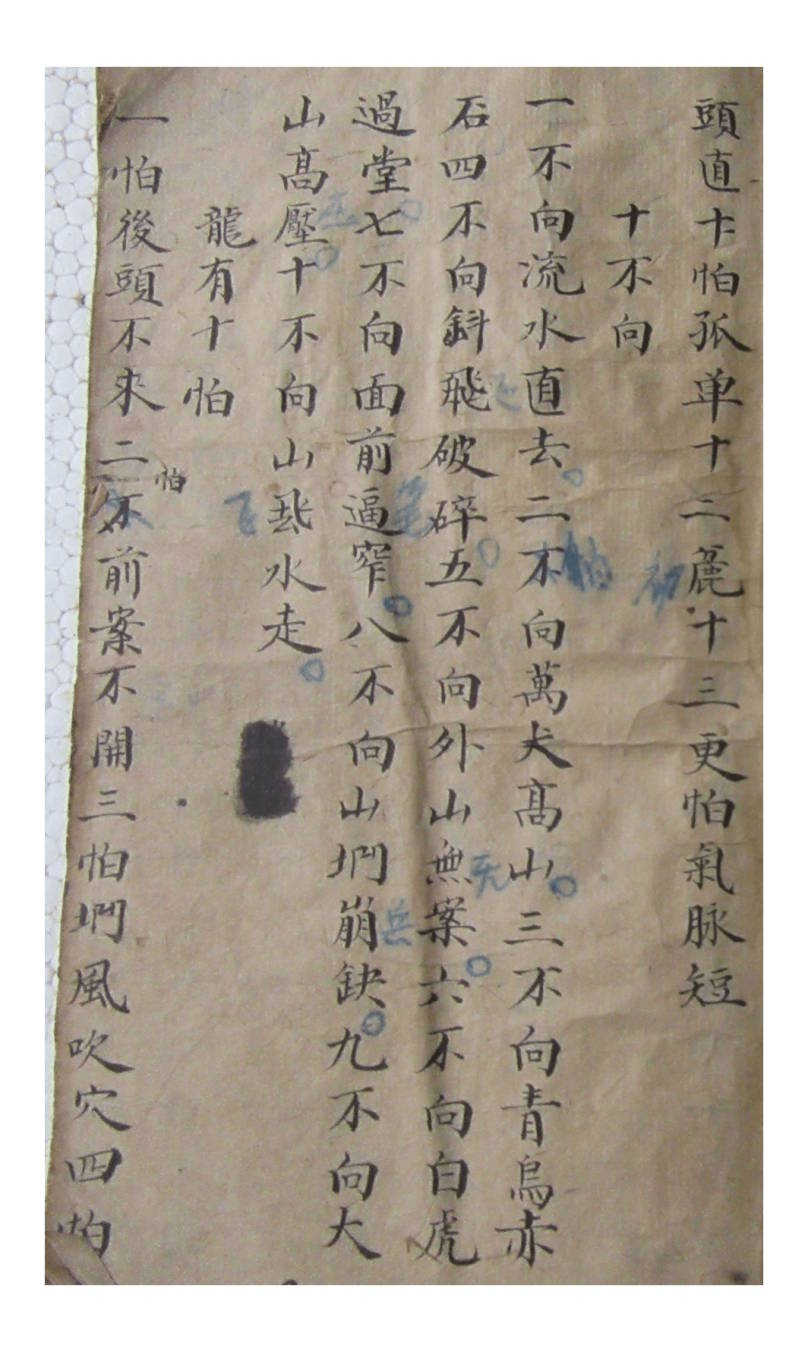 頭直卞怕孤单十二麁十三更怕氣脉短
十不向
一不向流水直去二不向萬犬高山三不向青烏赤
石四不向斜飛破碎五不向外山無案六不向白虎
過堂七不向面前逼窄八不向山坳崩缺九不向大
山高壓十不向山飛水走
龍有十怕
一怕後頭不來二怕不前案不開三怕坳風吹穴四怕